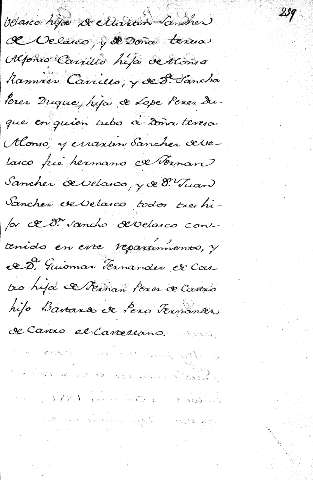 239
Velasco hijo de Martin Sanchez
de Velasco, y de Doña teresa
Alfonso Carrillo hija de Alonso
Ramirez Carrillo, y de Dª. Sancha
Perez Duque, hija de Lope Perez Du-
que en quien tubo a Doña teresa
Alonso, y Martin Sanchez de Ve-
lasco fué hermano de Fernan
Sanchez de Velasco, y de Dⁿ. Juan
Sanchez de Velasco todos tres hi-
jos de Dⁿ. Sancho de Velasco con-
tenido en este repartimiento, y
de Dª. Guiomar Fernandez de Cas-
tro hija de Fernan Perez de Castro
hijo Bastardo de Pero Fernandez
de Castro el Castellano.